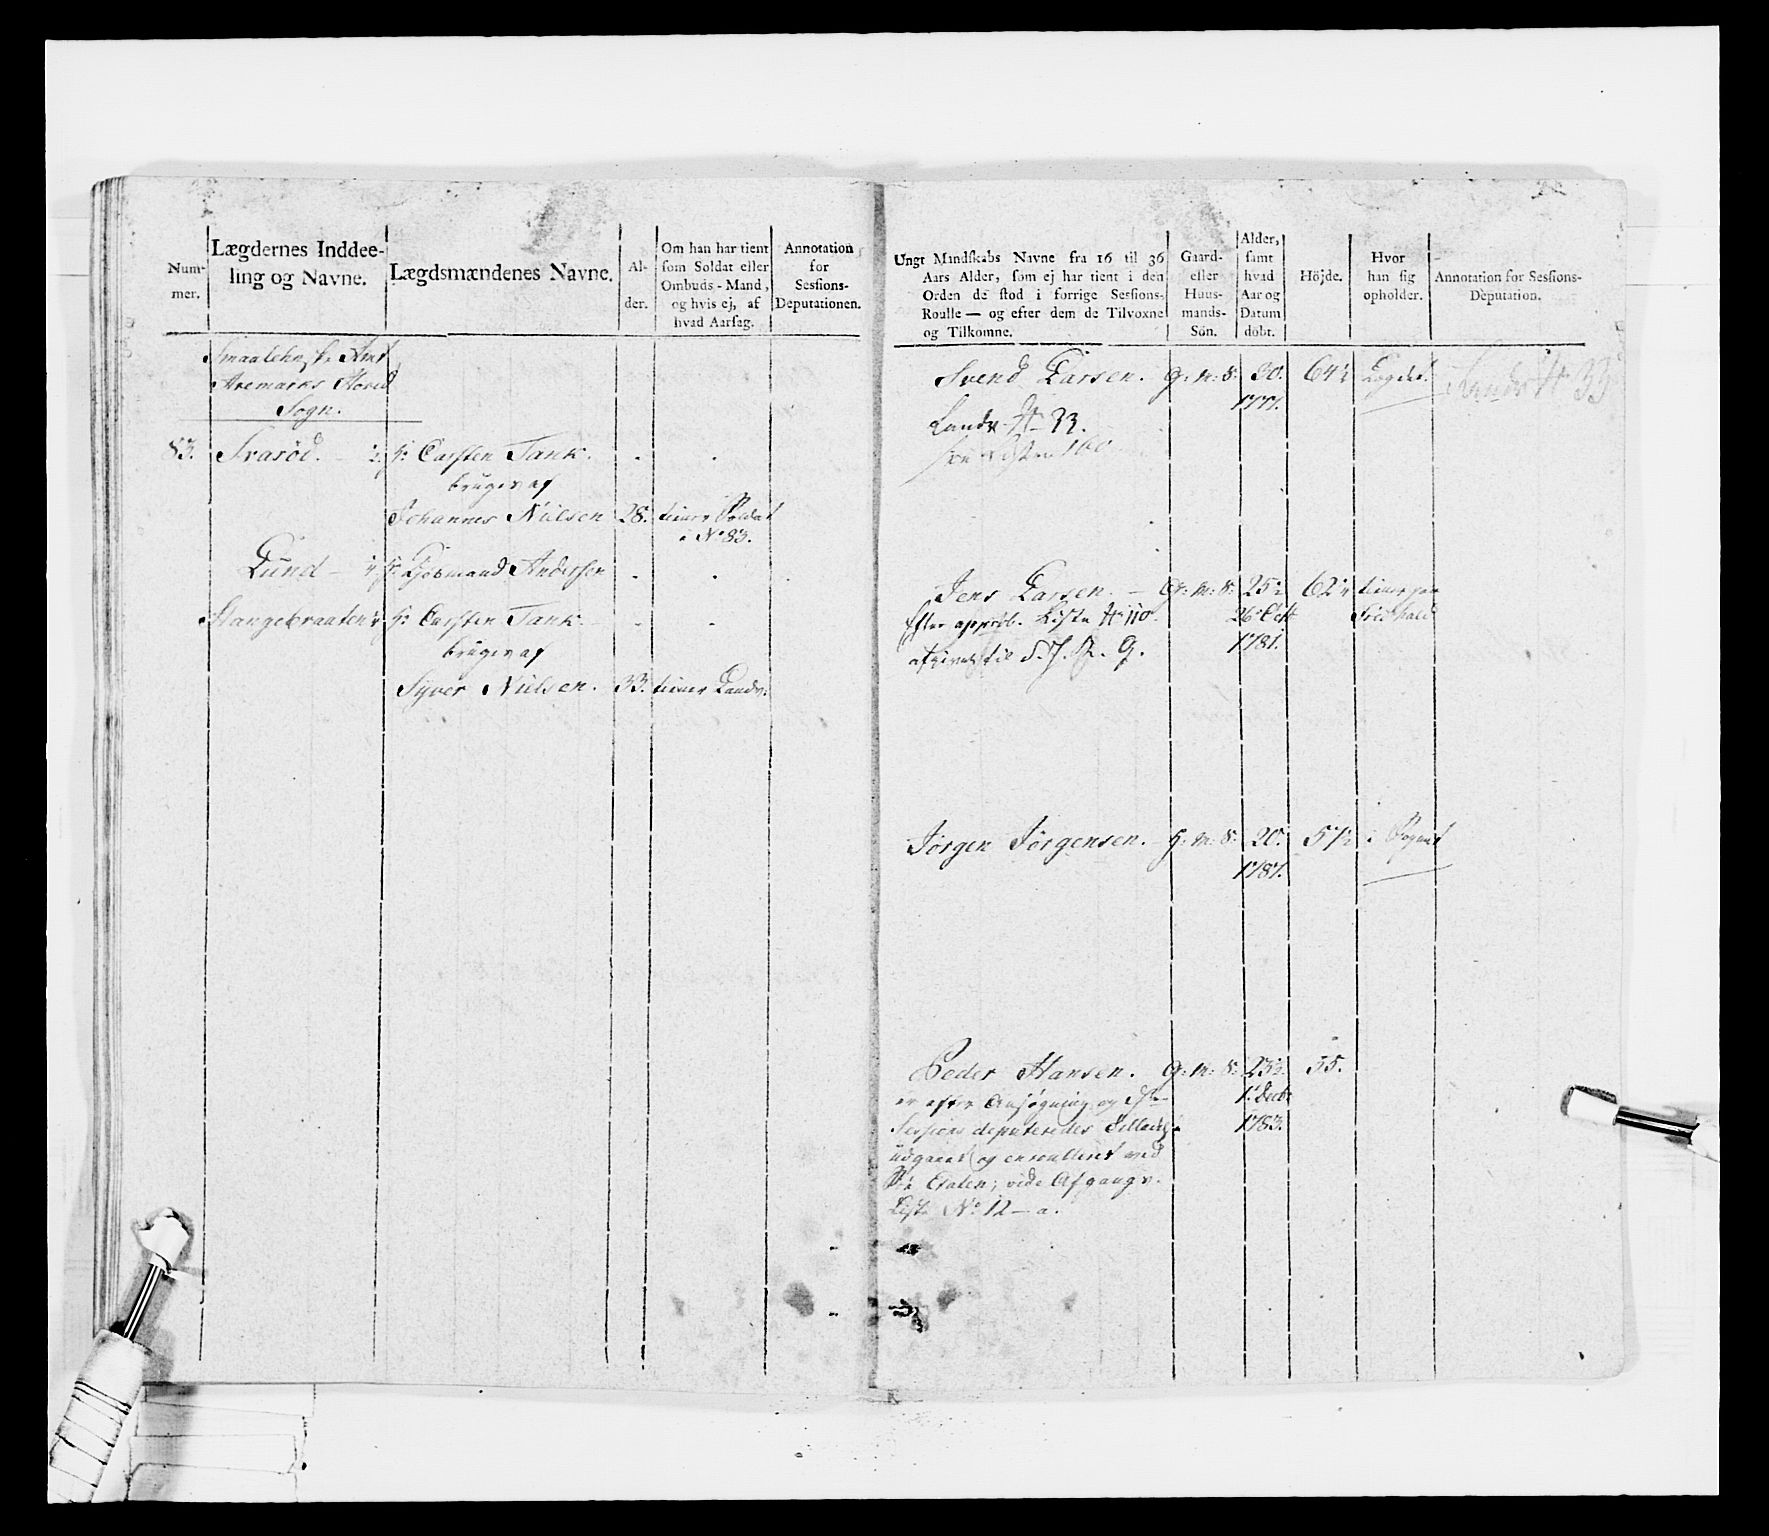 Num-
mer.
Lægdernes Inddee-
ling og Navne.
Lægdsmændenes Navne.
Al-
der.
Om han har tient
som Soldat eller
Ombuds-Mand,
og hvis ej, af
hvad Aarsag.
Annotation
for
Sessions-
Deputationen.
Smaalehnske Amt
Aremarks Hoved
Sogn.
83. Svarød. H: Carsten Tank.
bruges af
Johannes Nielsen 28. tiener Soldat
i No 83.
Lund Andersen
Stangebraaten H: Carsten Tank
bruges af
Syver Nielsen. 33. tiener Landv:
Ungt Mandskabs Navne fra 16 til 36
Aars Alder, som ej har tient i den
Orden de stod i forrige Sessions-
Roulle — og efter dem de Tilvoxne
og Tilkomne.
Gaard-
eller
Huus-
mands-
Søn.
Alder,
samt
hvad
Aar og
Datum
døbt.
Höjde.
Hvor
han sig
opholder.
Annotation for Sessions-
Deputation.
Svend Larsen. G: M: S: 30. 64½
1777.
Landv
160
Jens Larsen. G: M: S: 25½ 62¼ tiener paa
Efter approb. Liste No 110. 26 Oct Fridhald
afgivet til 1781.
Jörgen Jörgensen. H: M: S: 20. 57½ i Sognet
1787.
Peder Hansen. G: M: S: 23½ 55.
er efter Ansøgning og 1. Decbr
Sessions deputeredes Tilladelse 1783.
udgaaet og enroulleret ved
Søe Etaten; vide Afgangs-
Liste No 12 — a.